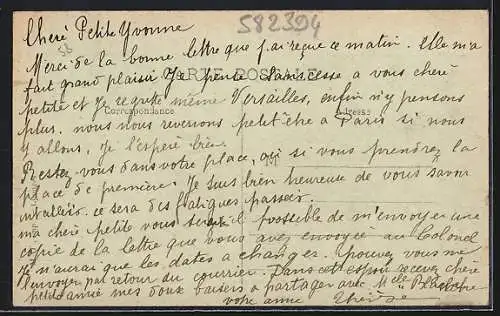 582394
Cheré Petite Yvonne
58
Merci de la bonne lettre que j'ai reçue ce matin. Elle m'a
fait grand plaisir Je pense sans cesse a vous cheré
CARTE POSTALE
petite et Je regrette même Versailles, enfin n'y pensons
Correspondance
Adresse
plus. nous nous reverrons peut être a Paris si nous
y allons, Je l'espère bien.
Restez vous dans votre place, ou si vous prendrez la
place de première. Je suis bien heureuse de vous savoir
installée. ce sera des fatigues passées.
ma cheré petite vous serait il possible de m'envoyer une
copie de la lettre que vous avez envoyée au Colonel
Je n'aurai que les dates a changer. pouvez vous me
l'envoyer par retour du courrier. Dans cet espoir recevez chère
petite amie mes doux baisers a partager avec Melle
votre amie Thérèse